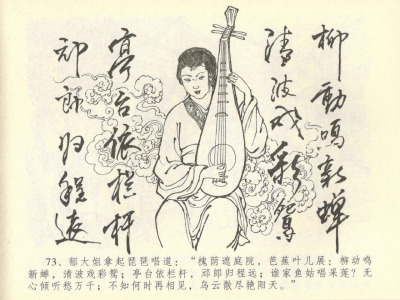 柳動鳴新蝉
清波戏彩鸳
亭台依栏杆
邓郎归程遠
73、郁大姐拿起琵琶唱道：“槐荫遮庭院，芭蕉叶儿展；柳动鸣
新蝉，清波戏彩鸳；亭台依栏杆，邓郎归程远；谁家鱼姑唱采莲？无
心倾听愁万千；不知何时再相见，乌云散尽艳阳天。”